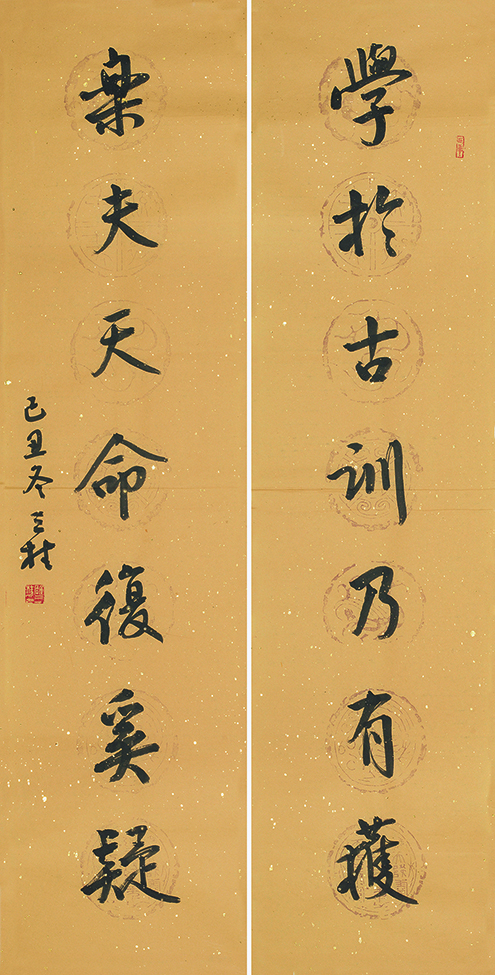 學於古訓乃有獲
楽夫天命復奚疑
己丑冬